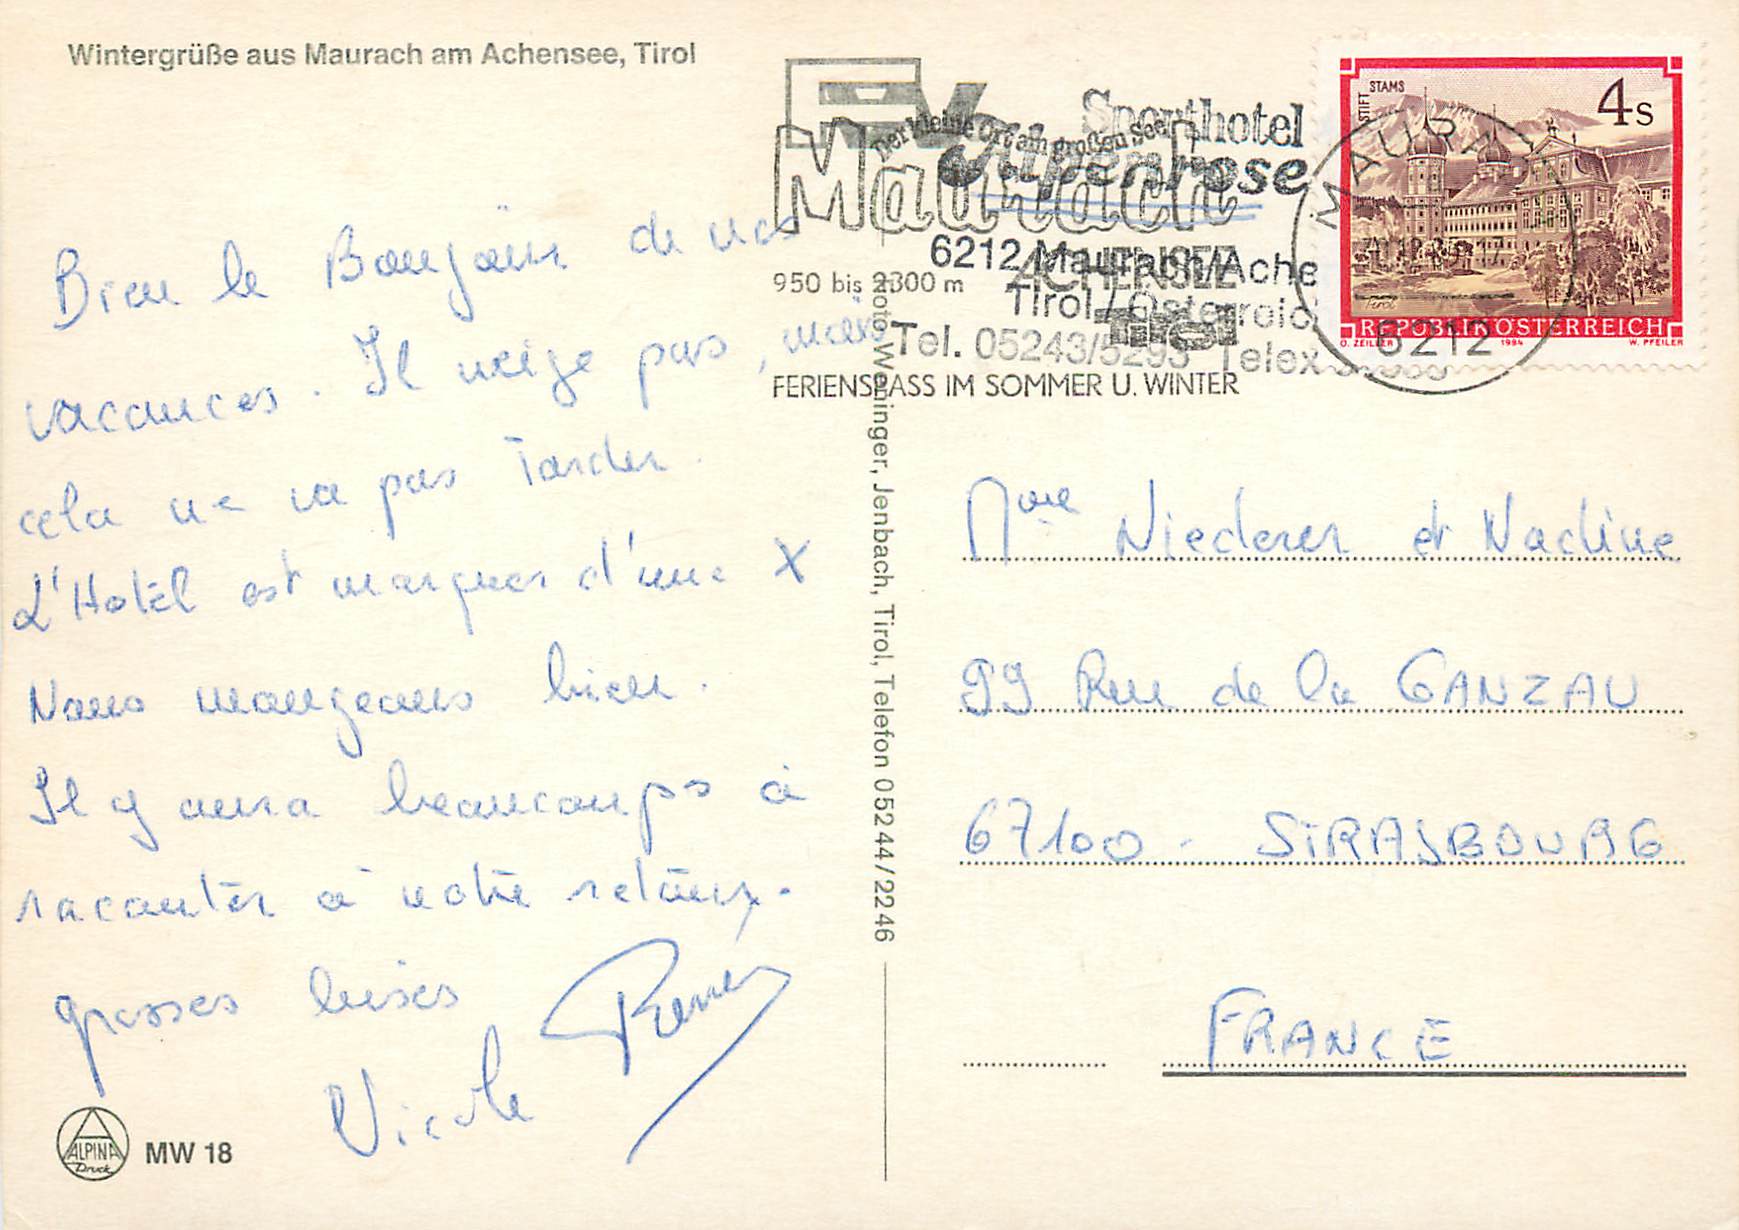 Wintergrüße aus Maurach am Achensee, Tirol
Bien le Bonjour de nos
vacances. Il neige pas, mais
cela ne va pas Tarder.
L'Hotel est marquer d'une X
Nous mangeons bien.
Il y aura beaucoups à
raconter à notre retour.
grosses bises
Nicole
René
ALPINA
Druck
MW 18
Foto Weninger, Jenbach, Tirol, Telefon 05244/2246
Sporthotel
Der kleine Ort am großen See
Alpenrose
Maurach
6212 Maurach/Ache
ACHENSEE
950 bis 2300 m
Tirol / Österreich
Tirol
Tel. 05243/5293 Telex
FERIENSPASS IM SOMMER U. WINTER
MAURACH
6212
STIFT STAMS
4s
Tirol
REPUBLIK ÖSTERREICH
O. ZEILLER 1984 W. PFEILER
Mme Niederer et Nadine
99 Rue de la GANZAU
67100 - STRASBOURG
FRANCE